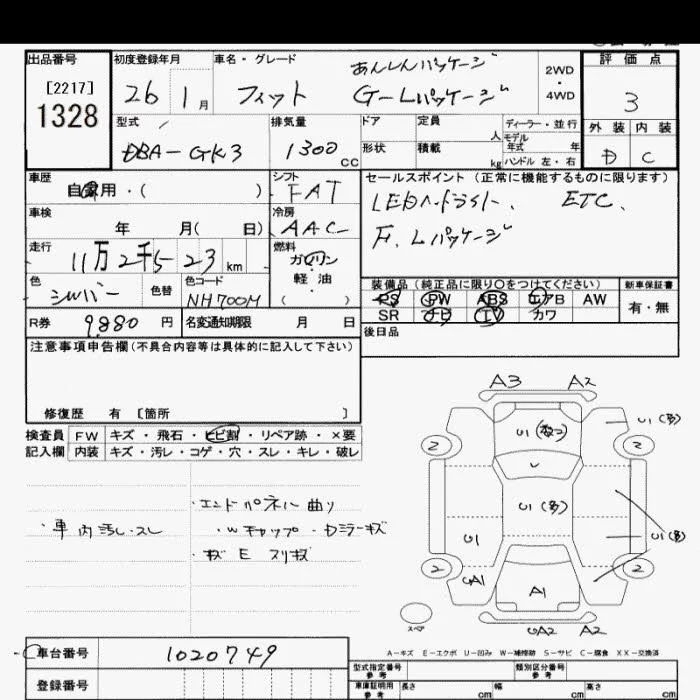 出品番号 初度登録年月 車名・グレード 評価点
[2217]
1328
26 1月 フィット あんしんパッケージ
G-Lパッケージ
2WD
・
4WD
3
型式 排気量 ドア 定員 人 ディーラー・並行
モデル年式 年
外装 内装
DBA-GK3 1300cc 形状 積載 kg ハンドル 左・右
D C
車歴 自家用・( ) シフト FAT
セールスポイント(正常に機能するものに限ります)
LEDヘッドライト、 ETC、
F、Lパッケージ
車検 年 月( 日) 冷房 AAC
走行 11万2千5 23 km 燃料 ガソリン
軽油
( )
色 シルバー 色替 色コード NH700M
装備品(純正品に限り○をつけてください) 新車保証書
PS PW ABS エアB AW 有・無
SR ナビ TV カワ
R券 9,880円 名変通知期限 月 日
後日品
注意事項申告欄(不具合内容等は具体的に記入して下さい)
修復歴 有 [箇所 ]
検査員 FW キズ・飛石・ヒビ割・リペア跡・×要
記入欄 内装 キズ・汚レ・コゲ・穴・スレ・キレ・破レ
・車内汚レ・スレ
・エンドパネル曲り
・Wキャップ・Dミラーキズ
・キズ E スリキズ
A3 A2
U1(数コ) U1(多)
2 2
U
U1(多)
U1 U1(多)
2 2
UA1 A1
スペア UA2 A2
A-キズ E-エクボ U-凹み W-補修跡 S-サビ C-腐食 XX-交換済
車台番号 1020749
登録番号
型式指定番号 参考 類別区分番号 参考
車庫証明用 参考 長さ cm 幅 cm 高さ cm